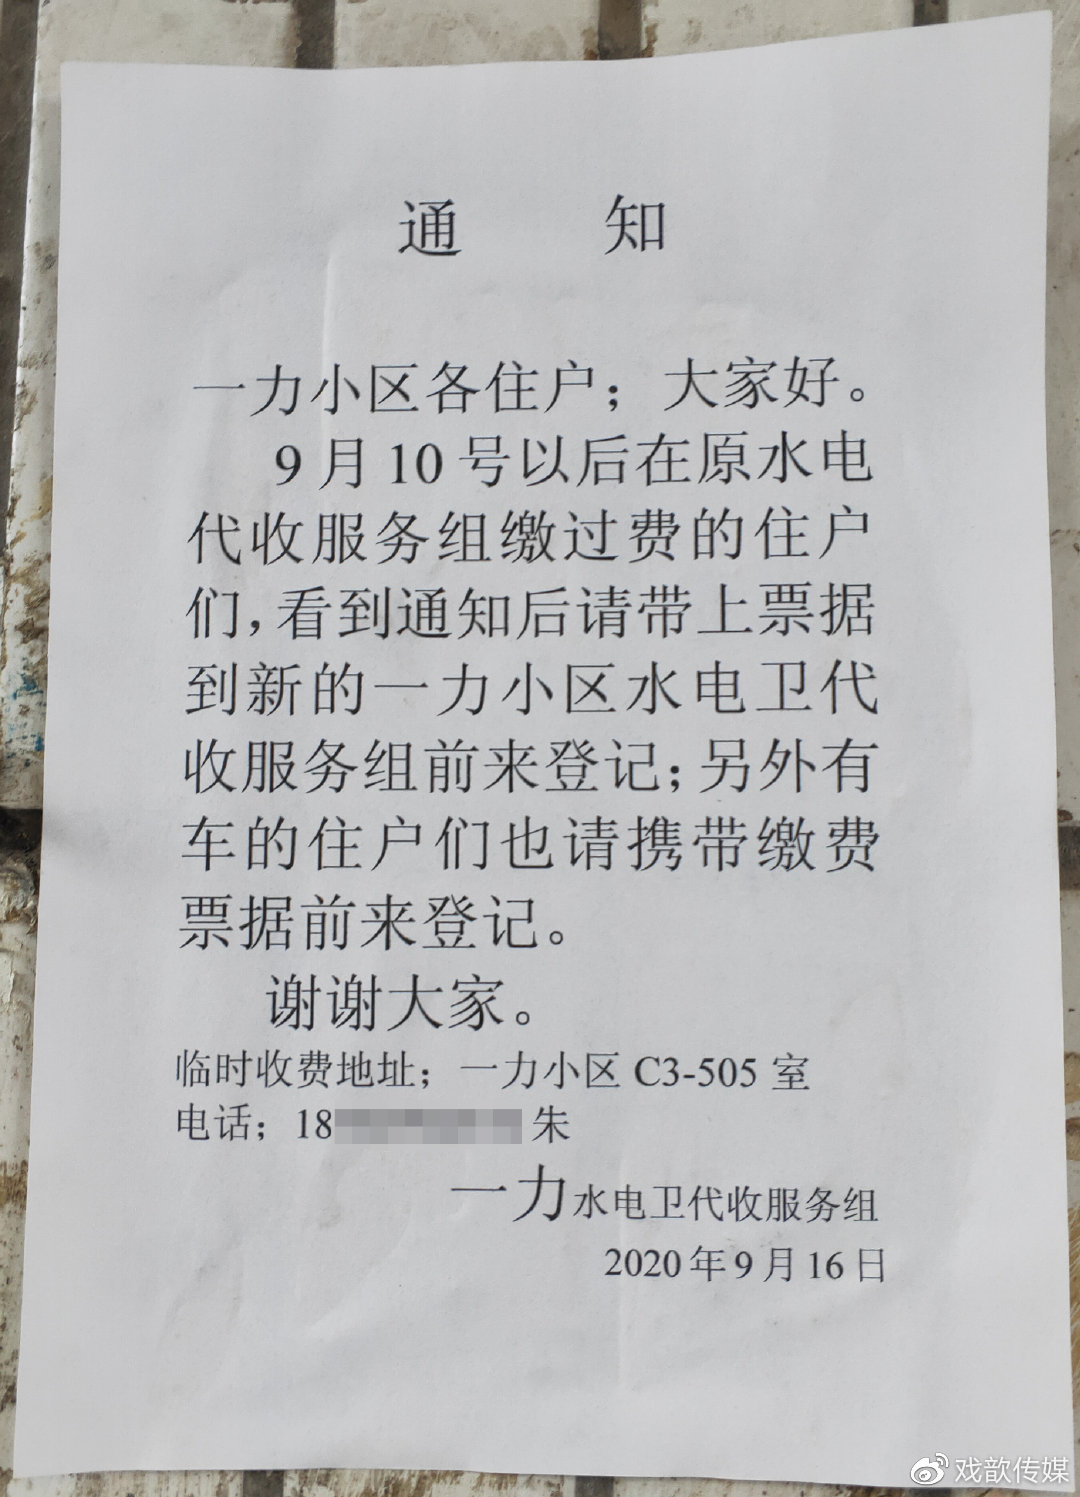 通 知
一力小区各住户；大家好。
9月10号以后在原水电
代收服务组缴过费的住户
们，看到通知后请带上票据
到新的一力小区水电卫代
收服务组前来登记；另外有
车的住户们也请携带缴费
票据前来登记。
谢谢大家。
临时收费地址；一力小区 C3-505 室
电话；18 朱
一力水电卫代收服务组
2020年9月16日
戏歆传媒